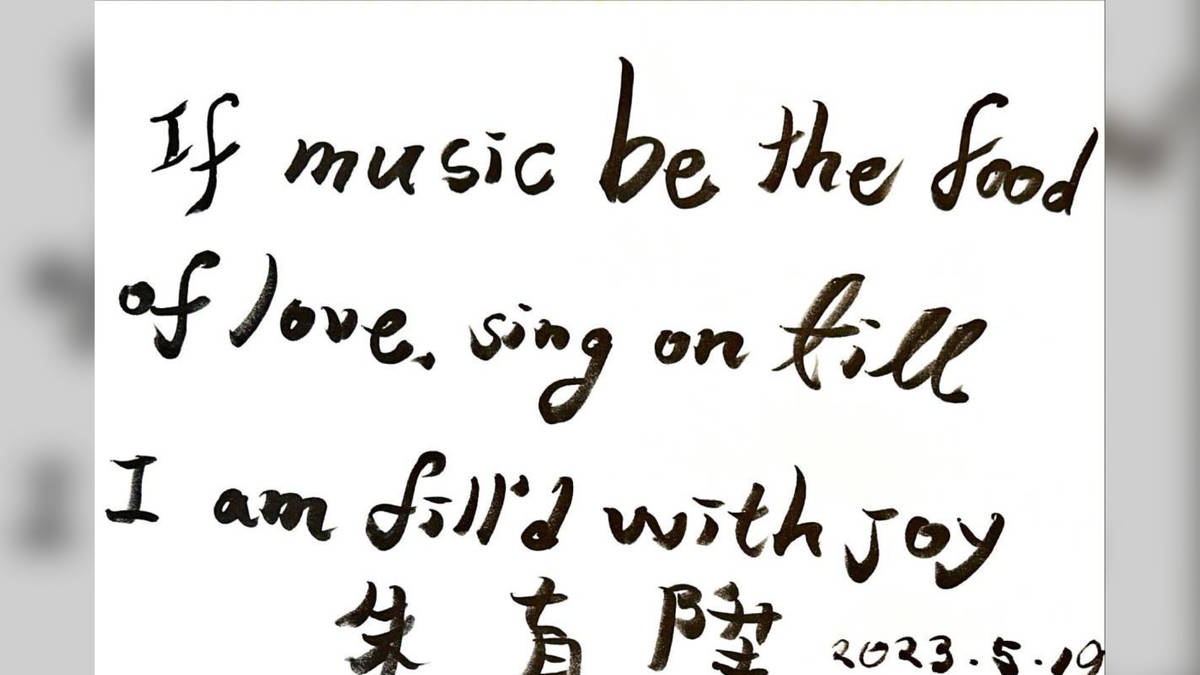 If music be the food
of love, sing on till
I am fill'd with joy
朱 有 陞 2023.5.19